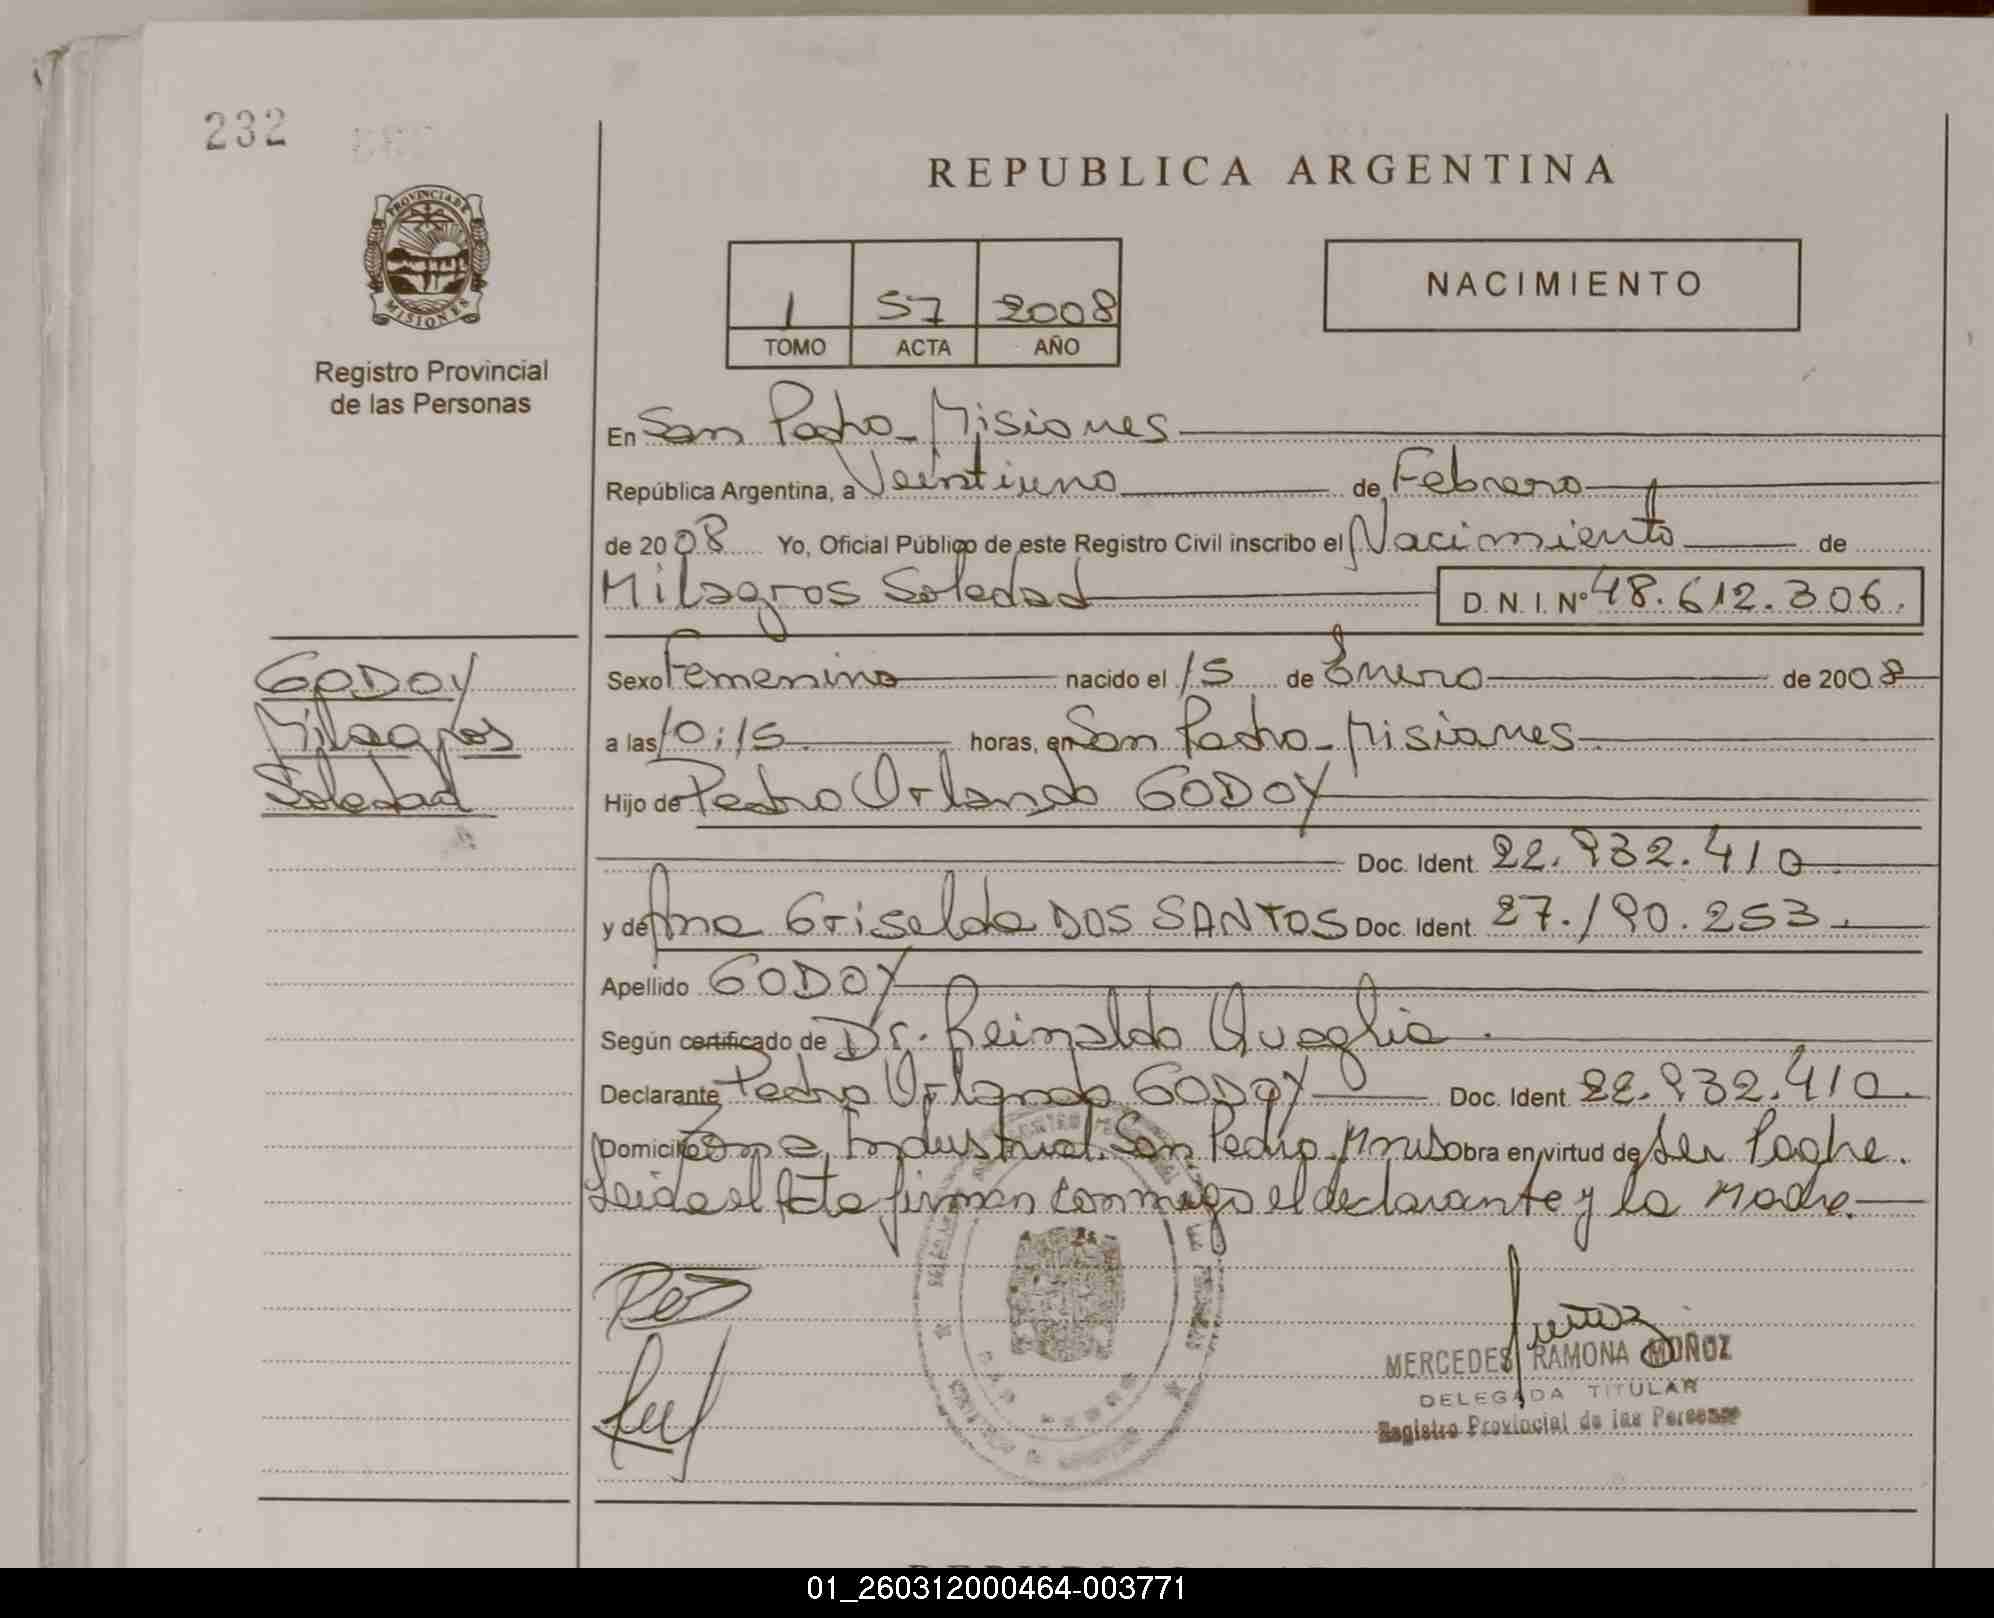 232
REPUBLICA ARGENTINA
PROVINCIA DE
MISIONES
Registro Provincial
de las Personas
1 57 2008
TOMO ACTA AÑO
NACIMIENTO
En San Pedro - Misiones
República Argentina, a Veintiuno de Febrero
de 2008 Yo, Oficial Público de este Registro Civil inscribo el Nacimiento de
Milagros Soledad D. N. I. Nº 48.612.306.
GODOY
Milagros
Soledad
Sexo Femenino nacido el 15 de Enero de 2008
a las 10:15 horas, en San Pedro - Misiones
Hijo de Pedro Orlando GODOY
Doc. Ident. 22.932.410
y de Ana Griselda DOS SANTOS Doc. Ident. 27.190.253.
Apellido GODOY
Según certificado de Dr. Reinaldo Quaglia.
Declarante Pedro Orlando GODOY Doc. Ident. 22.932.410.
Domicilio Zona Industrial. San Pedro. Mnes obra en virtud de Ser Padre.
Leída el Acta firman conmigo el declarante y la Madre.
MERCEDES RAMONA MUÑOZ
DELEGADA TITULAR
Registro Provincial de las Personas
01_260312000464-003771